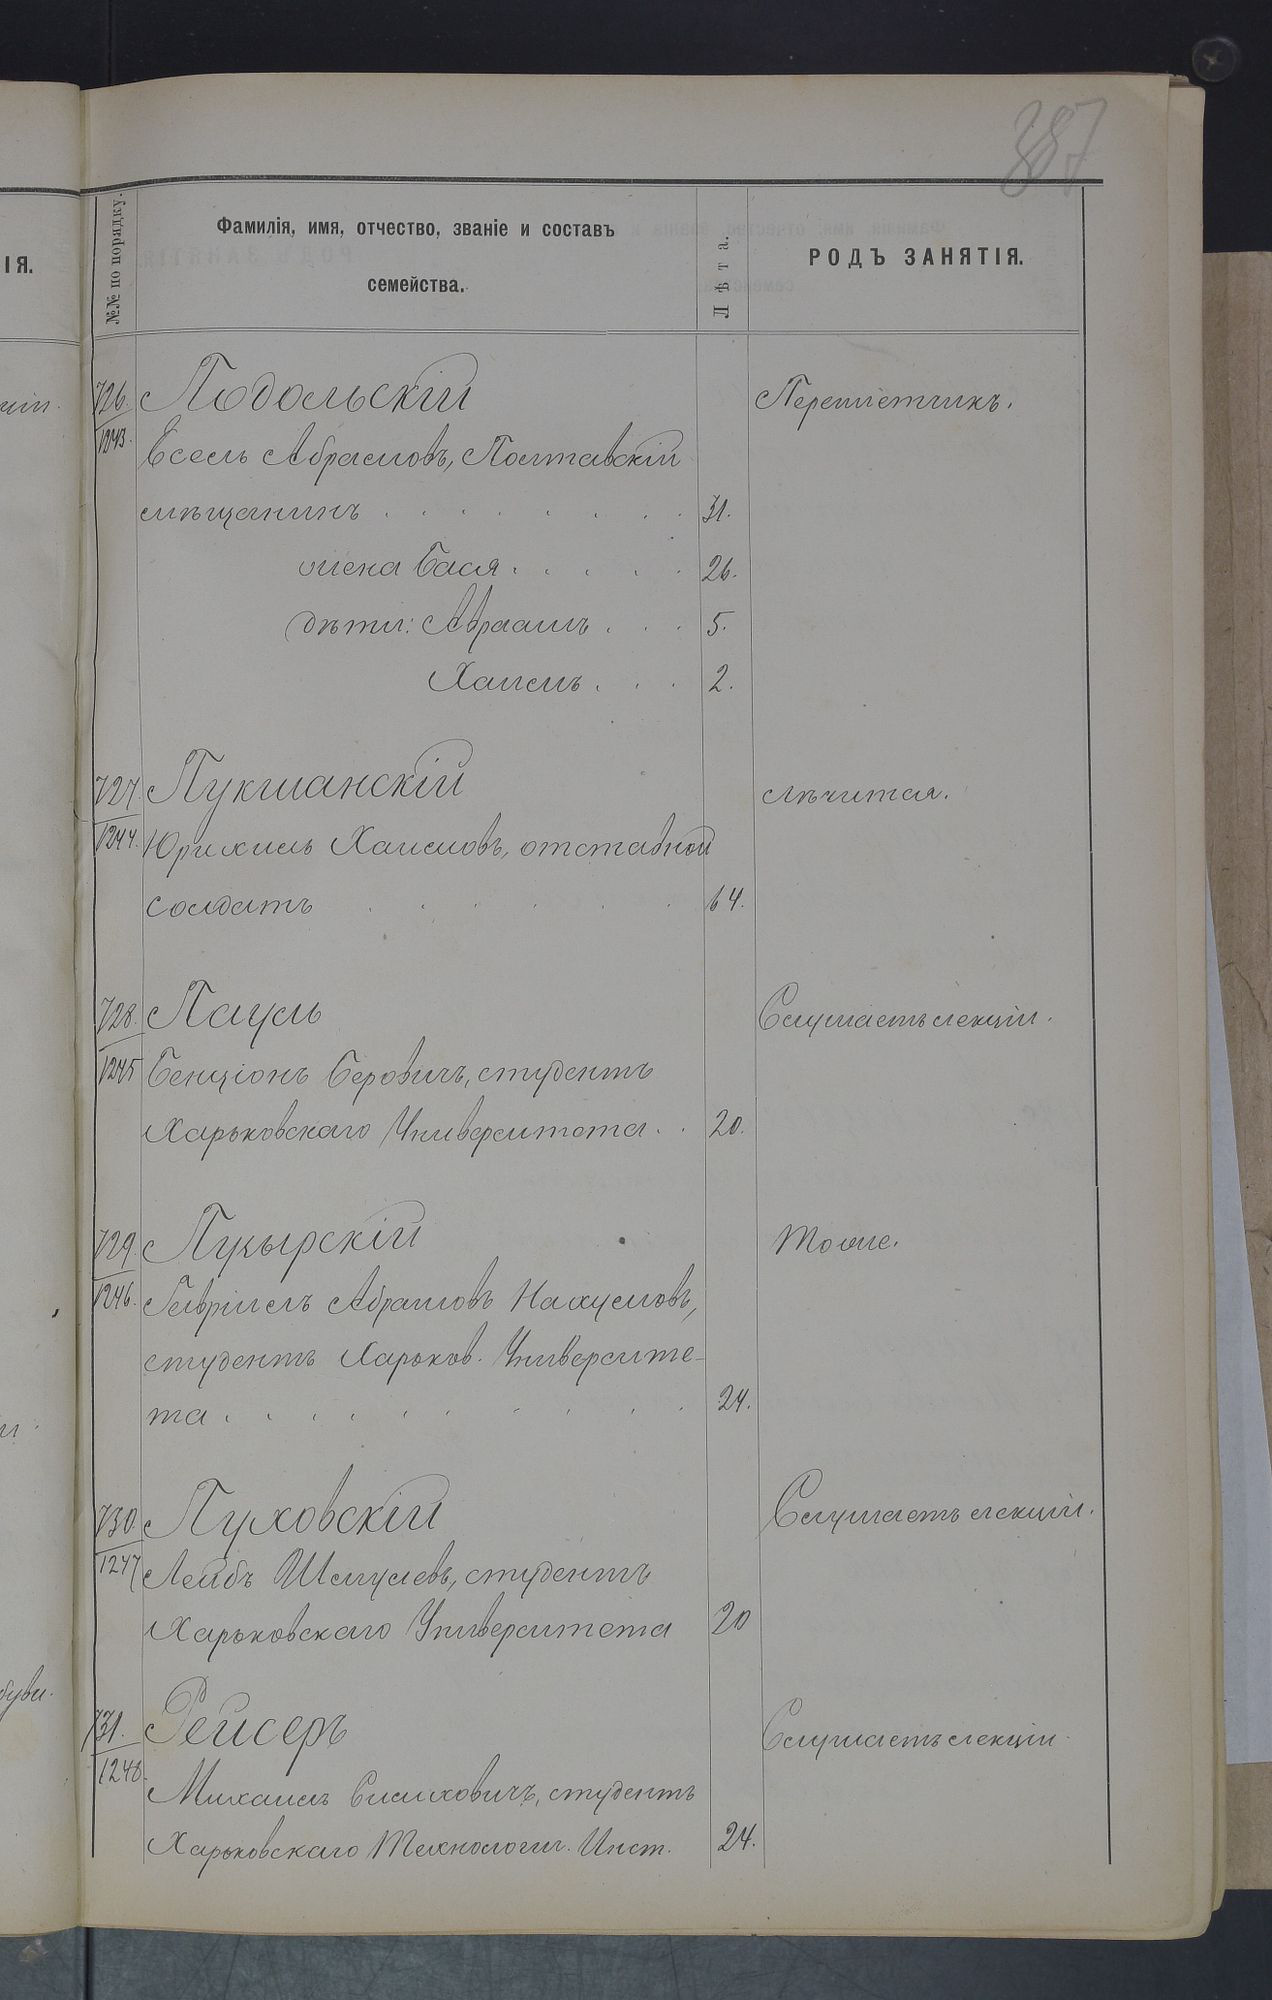 387
№№ по порядку.
Фамилія, имя, отчество, званіе и составъ
семейства.
Лѣта.
РОДЪ ЗАНЯТІЯ.
ІЯ.
726.
1243.
Подольскій
Переплетчикъ.
Есель Абрамовъ, Полтавскій
мѣщанинъ . . . . . . . . 31.
жена Бася . . . . . 26.
дѣти: Авраамъ . . . 5.
Хаимъ . . . 2.
727.
1244.
Пукшанскій
лѣчится.
Хаимовъ, отставной
солдатъ . . . . . . 64.
728.
1245
Пауль
Слушаетъ лекціи.
Бенціонъ Беровичъ, студентъ
Харьковскаго Университета . . 20.
729.
1246.
Пузырскій
Тоже.
Гавріилъ Абрамовъ Нахумовъ,
студентъ Харьков. Университе-
та . . . . . . . . . . 24.
730.
1247
Пуховскій
Слушаетъ лекціи.
Лейбъ Шмулевъ, студентъ
Харьковскаго Университета 20
731.
1248.
Рейсеръ
Слушаетъ лекціи.
Михаилъ студентъ
Харьковскаго Технологич. Инст. 24.